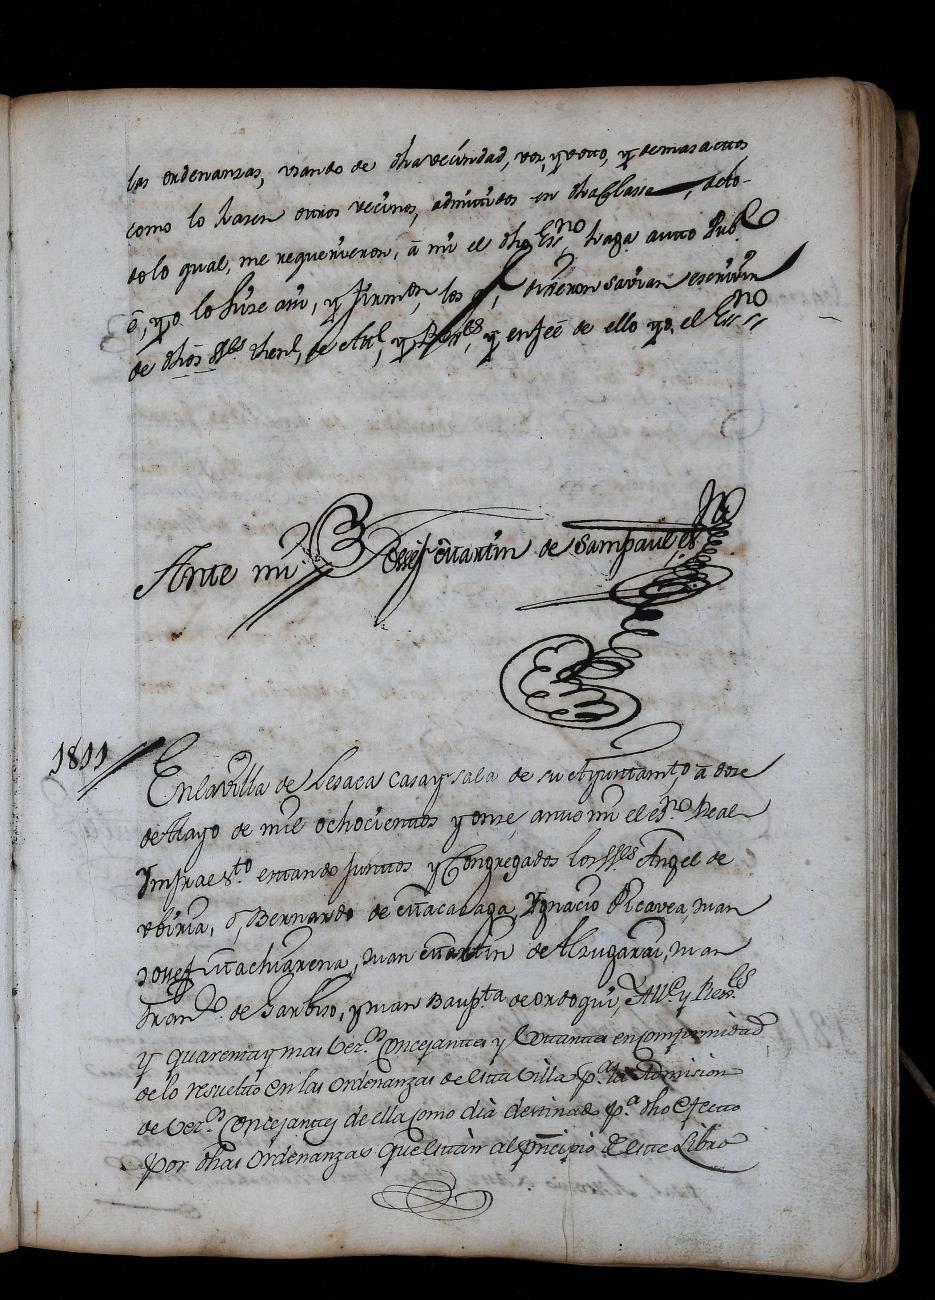 las ordenanzas, usando de dha vecindad, voz, y voto, y demas actos
como lo hasen otros vecinos, admitidos en dha Clase, de to-
do lo qual, me requerieron, â mi el dho Essno, haga auto Pubco
ê, yo lo hise asi, y firmon los q, dixeron savian escrivir
de dhos Sres Thente de Alcl, y Rexres, y enfeê de ello yo, el Essno
Ante mi Josef Martin de Sampaul es no
1811 // En la villa de Lesaca casa y sala de su Ayuntamto â dose
de Mayo de mil ochocientos y onse, ante mi el esno Real
Ynfraescto estando juntos y Congregados los SSres Angel de
Ubiria, Bernardo de Macazaga, Ygnacio Picavea, Juan
Josef Machiarena, Juan Martin de Alzugarai, Juan
Franco de Garbiso, y Juan Baupta de Ordoqui, Alle y Rexres
y quarenta y mas Vezos Concejantes y Votantes en conformidad
de lo resuelto en las Ordenanzas de esta Villa pa la Admision
de Vezos Concejantes de ella como dia destinado pa dho efecto
por dhas Ordenanzas que estàn al pncipio de este Libro